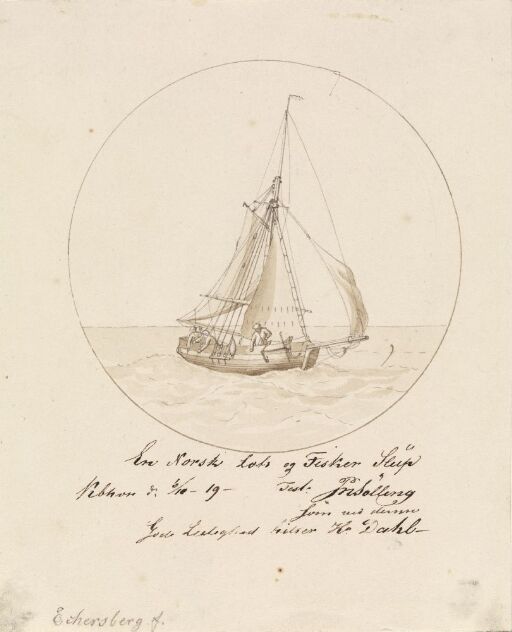 En Norsk Lots og Fisker Slup
Kbhvn d. 6/10 - 19 - Test.
som ved denne
Gode Leilighed hilser Hr Dahl -
Eckersberg f.